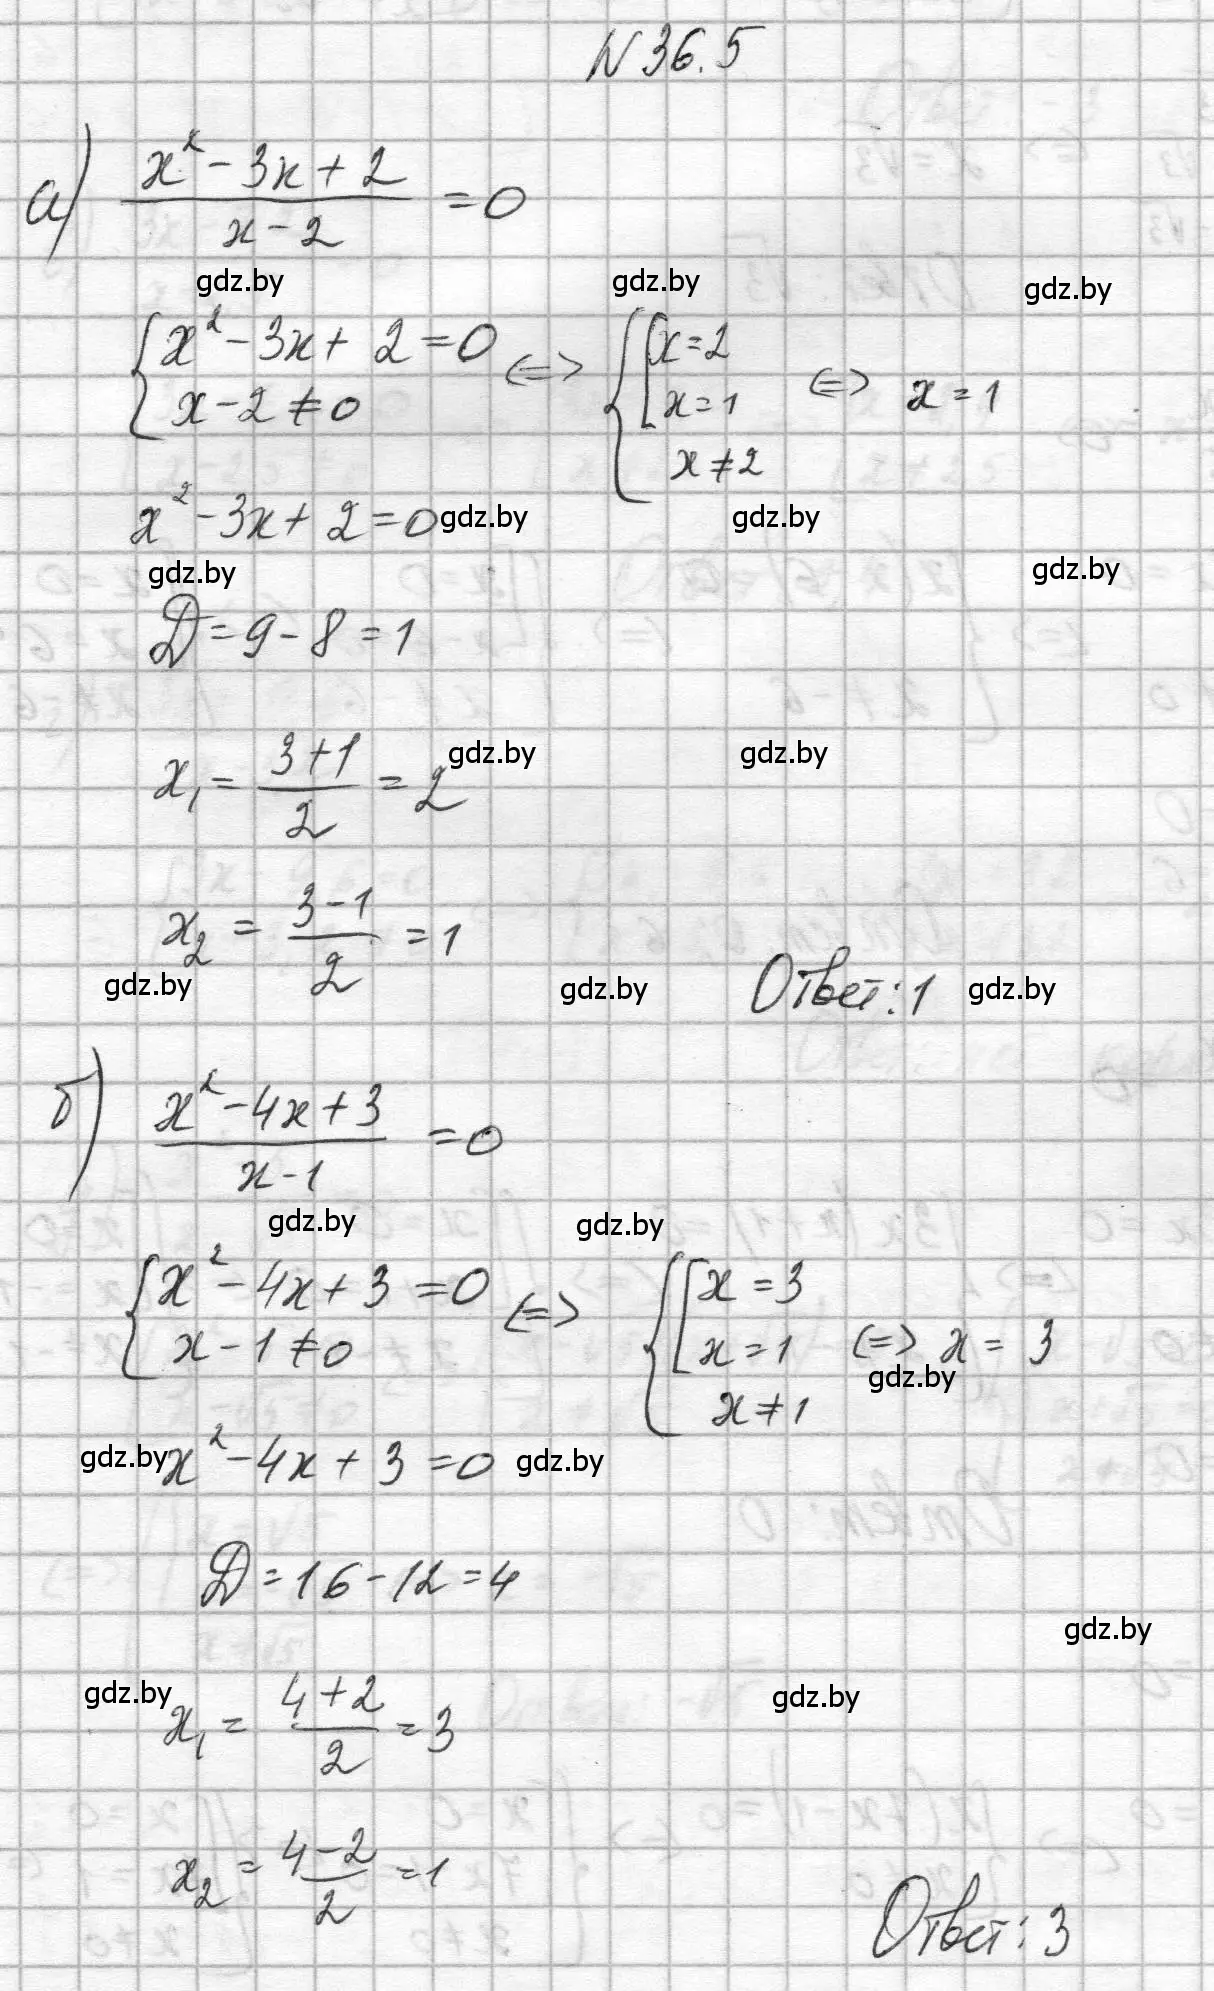 N 36.5
а) (x² - 3x + 2)/(x - 2) = 0
gdz.by gdz.by gdz.by
{ x² - 3x + 2 = 0 <=> { [ x = 2
x - 2 ≠ 0 x = 1 <=> x = 1
x ≠ 2
x² - 3x + 2 = 0 gdz.by gdz.by
gdz.by gdz.by
D = 9 - 8 = 1
x₁ = (3 + 1)/2 = 2 gdz.by gdz.by
x₂ = (3 - 1)/2 = 1
gdz.by gdz.by Ответ: 1 gdz.by
б) (x² - 4x + 3)/(x - 1) = 0
gdz.by gdz.by
{ x² - 4x + 3 = 0 <=> { [ x = 3
x - 1 ≠ 0 x = 1 <=> x = 3
gdz.by
x ≠ 1
gdz.by x² - 4x + 3 = 0 gdz.by
D = 16 - 12 = 4
gdz.by
gdz.by gdz.by
x₁ = (4 + 2)/2 = 3
x₂ = (4 - 2)/2 = 1
Ответ: 3